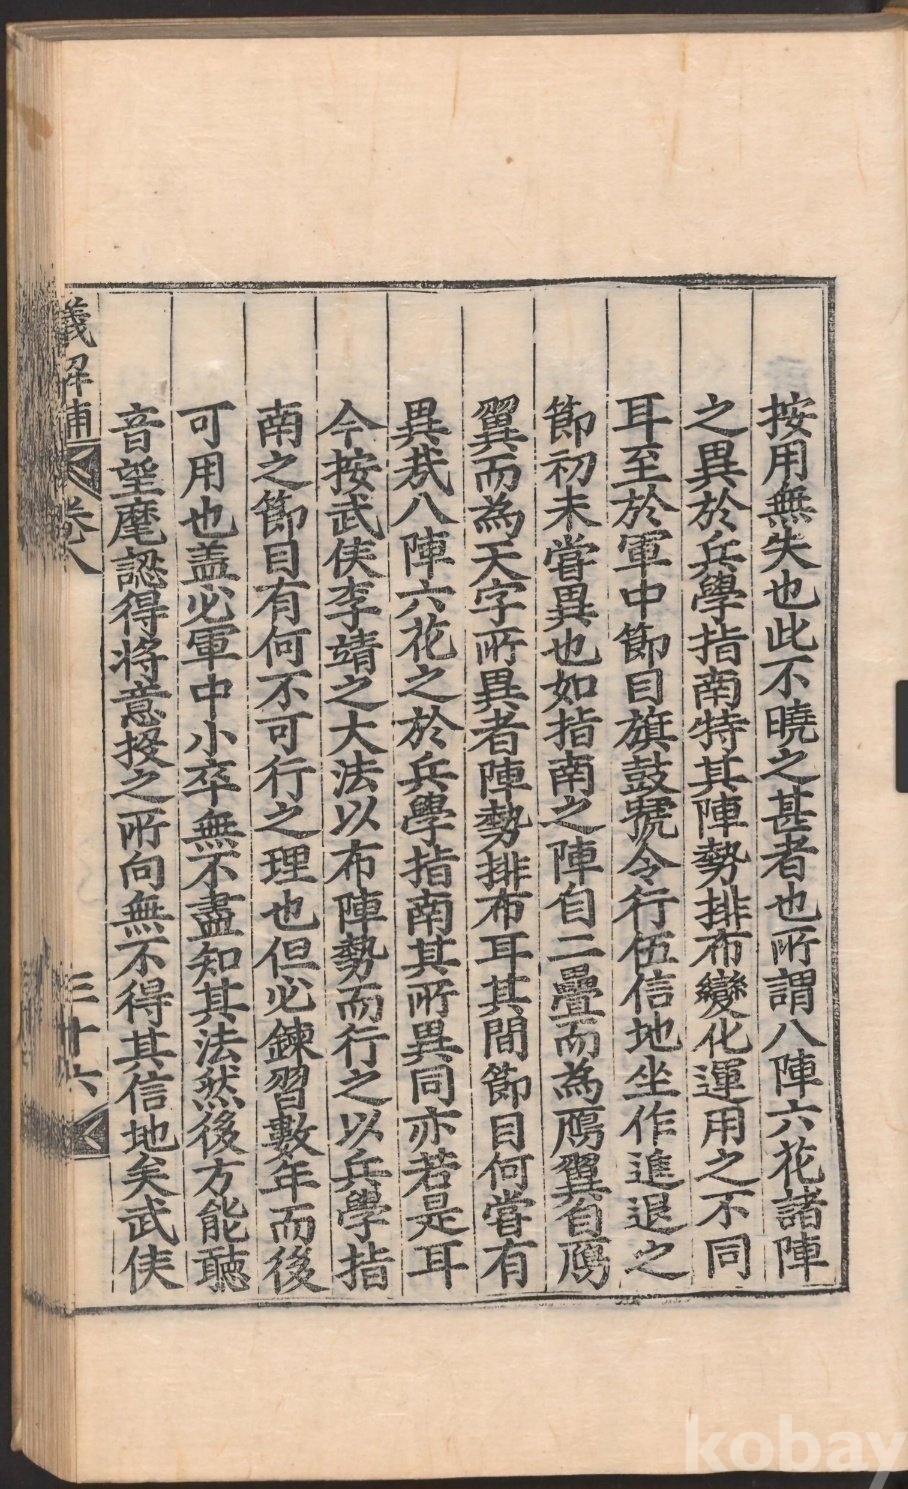 按用無失也此不曉之甚者也所謂八陣六花諸陣
之異於兵學指南特其陣勢排布變化運用之不同
耳至於軍中節目旗鼓號令行伍信地坐作進退之
節初未嘗異也如指南之陣自二疊而為鴈翼自鴈
翼而為天字所異者陣勢排布耳其間節目何嘗有
異㢤八陣六花之於兵學指南其所異同亦若是耳
今按武侯李靖之大法以布陣勢而行之以兵學指
南之節目有何不可行之理也但必鍊習數年而後
可用也盖必軍中小卒無不盡知其法然後方能聽
音望麾認得將意投之所向無不得其信地矣武侯
義解補 卷八 三十六
kobay